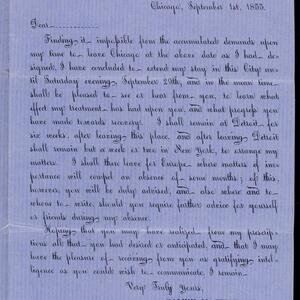 Chicago, September 1st, 1855.
Dear
Finding it impossible from the accumulated demands upon
my time to leave Chicago at the above date as I had de-
signed, I have concluded to extend my stay in this City un-
til Saturday evening, September 29th, and in the mean time
shall be pleased to see or hear from you, to learn what
effect my treatment has had upon you, and what progress you
have made towards recovery. I shall remain at Detroit for
six weeks, after leaving this place, and after leaving Detroit
shall remain but a week or two in New York, to arrange my
matters. I shall then leave for Europe, where matters of im-
portance will compel an absence of some months; of this,
however, you will be duly advised, and also where and to
whom to write, should you require further advice for yourself
or friends during my absence.
Hoping that you may have realized from my prescrip-
tions all that you had desired or anticipated, and that I may
have the pleasure of receiving from you as gratifying intel-
ligence as you could wish to communicate, I remain
Very Truly Yours,